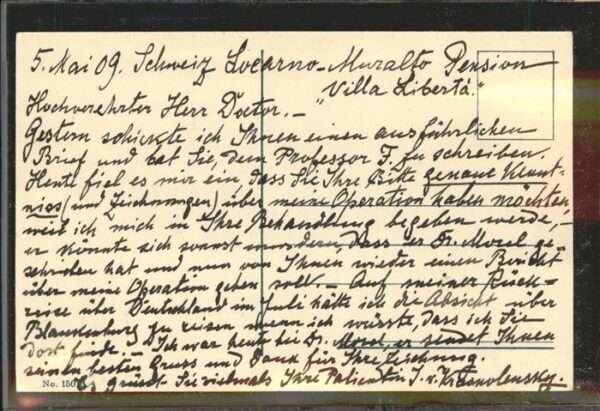 5. Mai 09. Schweiz Locarno-Muralto Pension
"Villa Libertá."
Hochverehrter Herr Doctor. –
Gestern schickte ich Ihnen einen ausführlichen
Brief und bat Sie, dem Professor F. zu schreiben.
Heute fiel es mir ein, dass Sie Ihre Bitte genaue Kennt-
niss (und Zeichnungen) über meine Operation haben möchten,
weil ich mich in Ihre Behandlung begeben werde, –
er könnte sich sonst wundern, dass er Dr. Morel ge-
schrieben hat und nun von Ihnen wieder einen Bericht
über meine Operation geben soll. – Auf meiner Rück-
reise über Deutschland im Juli hätte ich die Absicht über
Blankenburg zu reisen, wenn ich wüsste, dass ich Sie
dort finde. – Ich war heute bei Dr. Morel, er sendet Ihnen
seinen besten Gruss und Dank für Ihre Zeichnung.
Es grüsst Sie vielmals Ihre Patientin J. v.
No. 150